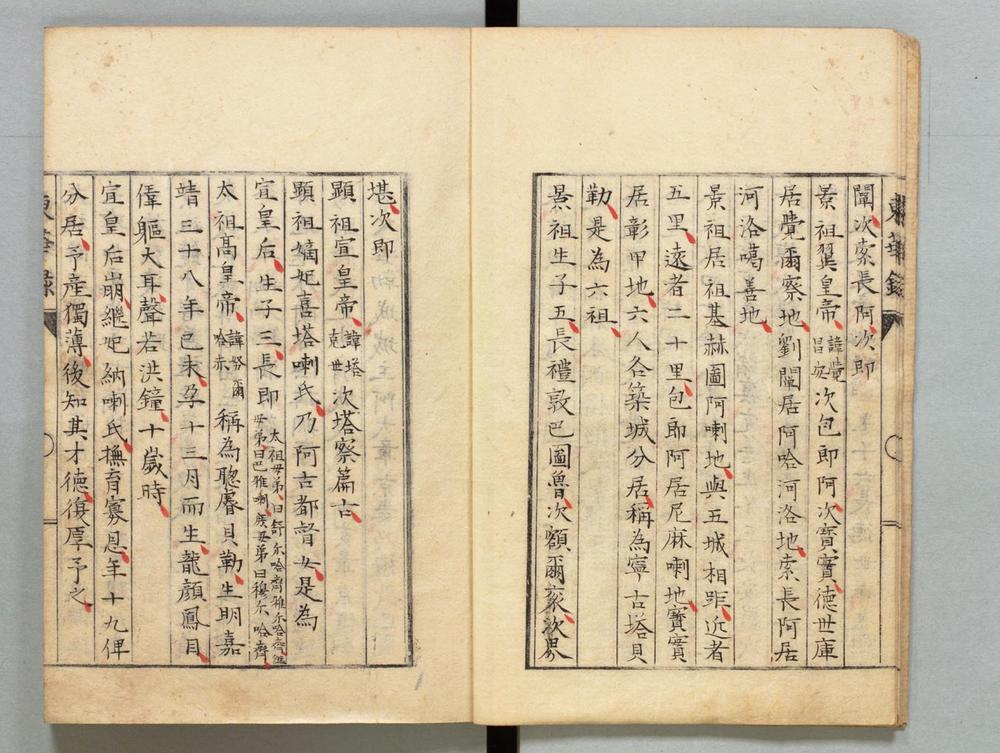 東華錄
闡次索長阿次即
景祖翼皇帝諱覺昌安次包即阿次寶實德世庫
居覺爾察地劉闡居阿哈河洛地索長阿居
河洛噶善地
景祖居祖基赫圖阿喇地與五城相距近者
五里遠者二十里包即阿居尼麻喇地寶實
居彰甲地六人各築城分居稱為寧古塔貝
勒是為六祖
景祖生子五長禮敦巴圖魯次額爾袞次界
堪次即
顯祖宣皇帝諱塔克世次塔察篇古
顯祖嫡妃喜塔喇氏乃阿古都督女是為
宣皇后生子三長即太祖母弟曰舒尔哈齊雅尔哈齊継母弟曰巴雅喇庻母弟曰穆尔哈齊
太祖高皇帝諱弩爾哈赤稱為聦睿貝勒生明嘉
靖三十八年己未孕十三月而生龍顏鳳目
偉軀大耳聲若洪鐘十歲時
宣皇后崩繼妃納喇氏撫育寡恩年十九俾
分居予產獨薄後知其才德復厚予之
東華錄